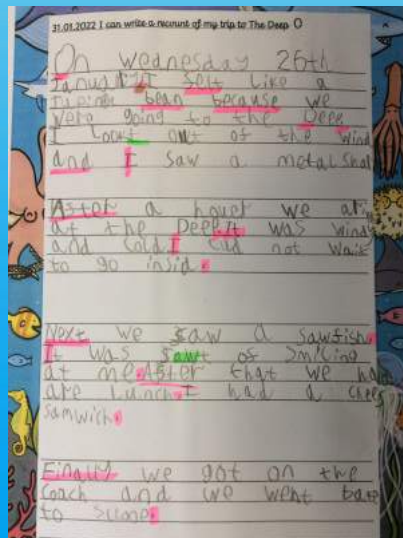 31.01.2022 I can write a recount of my trip to The Deep O
On Wednesday 26th
I felt like a
bean because we
were going to the Deep
I lookt out of the wind
and I saw a metal Shar
After a houer we ariv
at the Deep It was windy
and cold I cud not wait
to go insid.
Next we saw a Sawfish.
It was sowt of Smiling
at me. After that we had
are lunch. I had a chees
samwich.
Finally we got on the
Coach and we went back
to